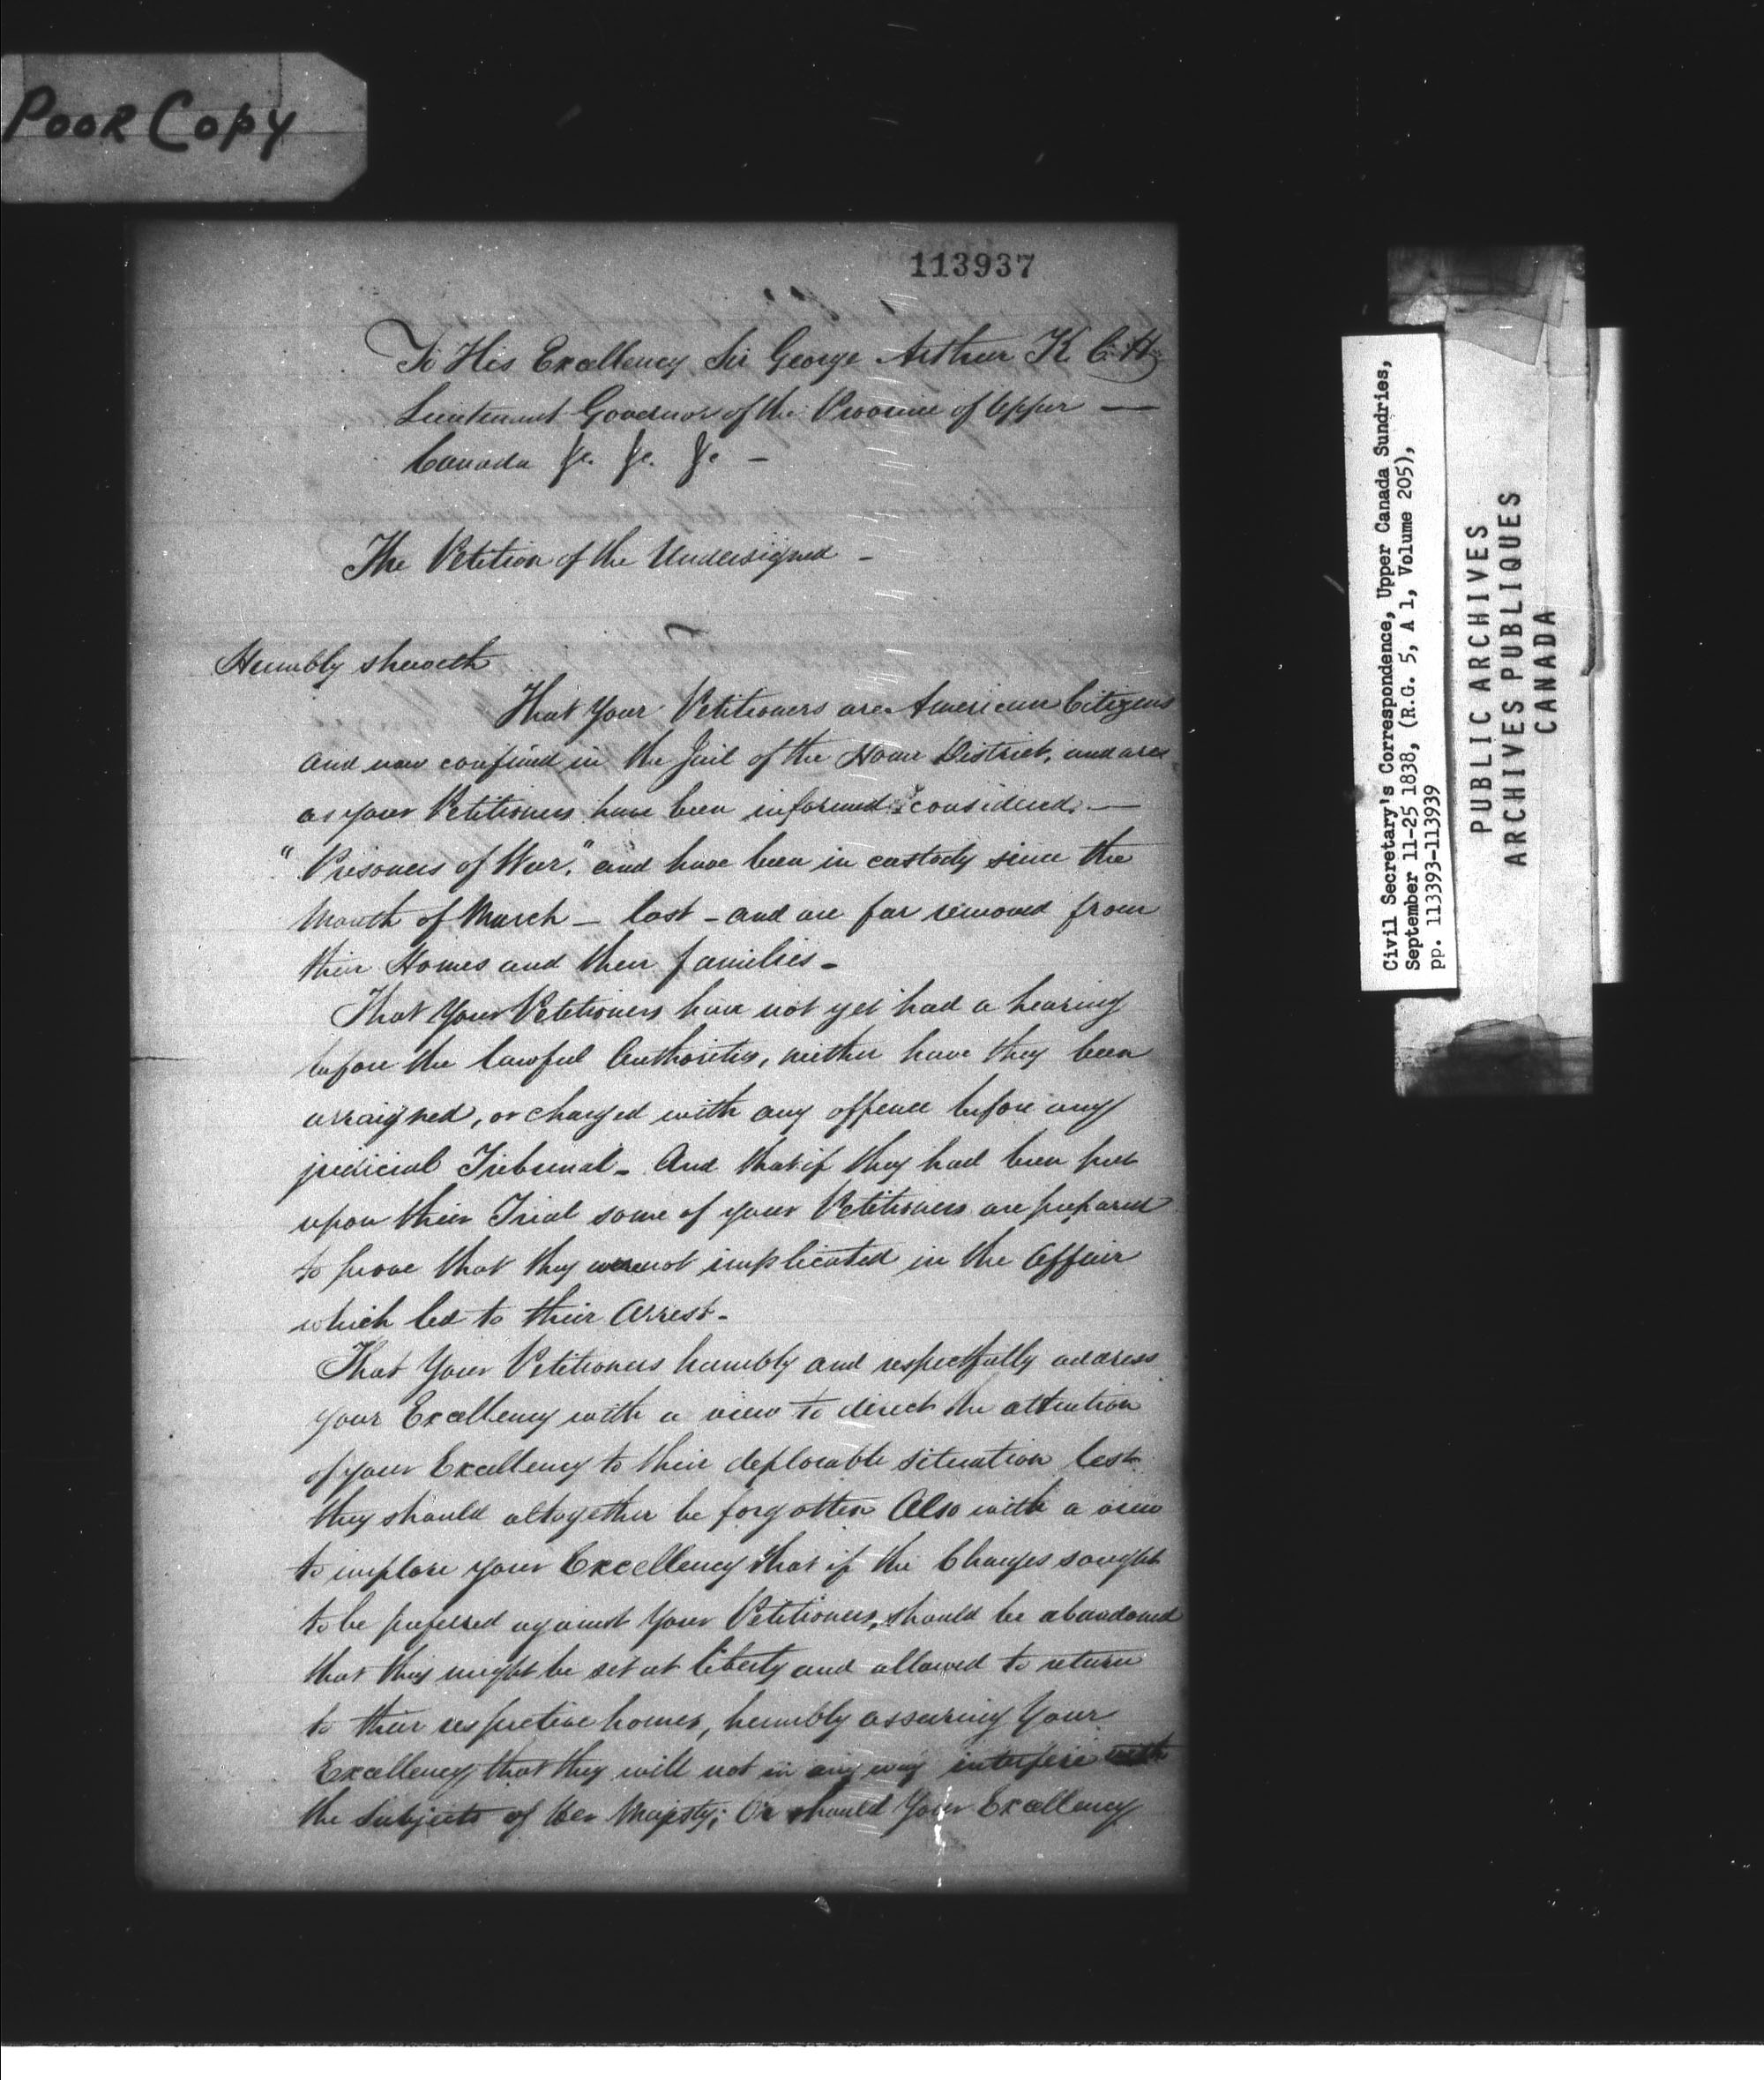 POOR Copy
113937
To His Excellency Sir George Arthur K C H
Lieutenant Governor of the Province of Upper —
Canada &c. &c. &c —
The Petition of the Undersigned —
Humbly sheweth
That Your Petitioners are American Citizens
and now confined in the Jail of the Home District, and are
as your Petitioners have been informed considered —
"Prisoners of War," and have been in custody since the
Month of March — last — and are far removed from
their Homes and their families —
That Your Petitioners have not yet had a hearing
before the lawful Authorities, neither have they been
arraigned, or charged with any offence before any
judicial Tribunal — And that if they had been put
upon their Trial some of your Petitioners are prepared
to prove that they were not implicated in the Affair
which led to their Arrest —
That Your Petitioners humbly and respectfully address
your Excellency with a view to direct the attention
of your Excellency to their deplorable situation lest
they should altogether be forgotten Also with a view
to implore your Excellency that if the Charges sought
to be preferred against Your Petitioners, should be abandoned
that they might be set at liberty and allowed to return
to their respective homes, humbly assuring Your
Excellency that they will not in any way interfere with
the Subjects of Her Majesty; Or should Your Excellency
Civil Secretary's Correspondence, Upper Canada Sundries,
September 11-25 1838, (R.G. 5, A 1, Volume 205),
pp. 113393-113939
PUBLIC ARCHIVES
ARCHIVES PUBLIQUES
CANADA